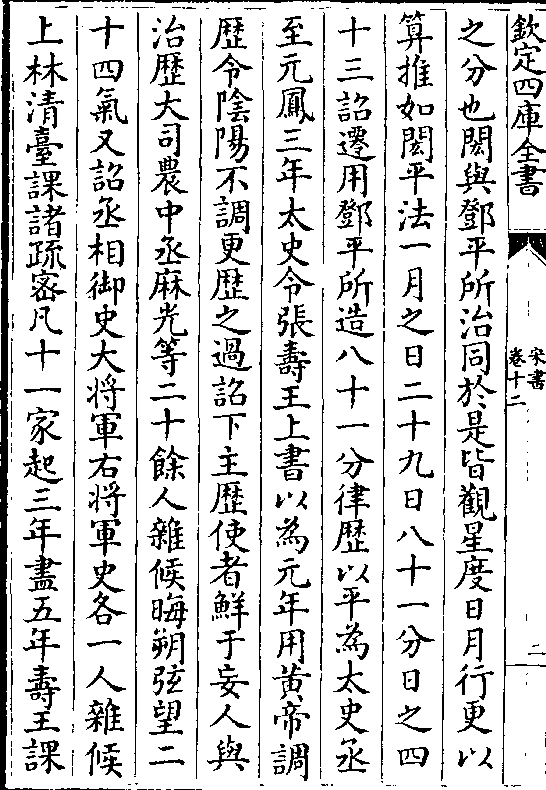 欽定四庫全書
宋書
卷十二
二
之分也閎與鄧平所治同於是皆觀星度日月行更以
算推如閎平法一月之日二十九日八十一分日之四
十三詔遷用鄧平所造八十一分律歴以平為太史丞
至元鳳三年太史令張壽王上書以為元年用黄帝調
歴令陰陽不調更歴之過詔下主歴使者鮮于妄人與
治歴大司農中丞麻光等二十餘人雜候晦朔弦望二
十四氣又詔丞相御史大將軍右將軍史各一人雜候
上林清臺課諸疏宻凡十一家起三年盡五年壽王課